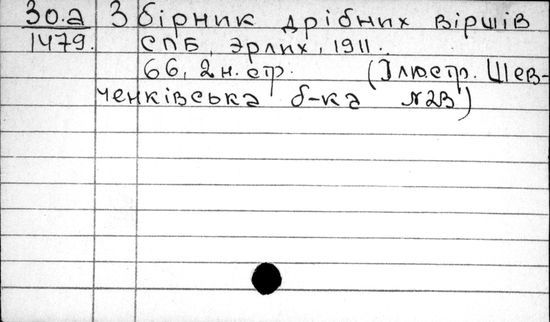 30.2 Збірник дрібних віршів
1479. СПБ, Эрлих, 1911.
66, 2 н. стр. (Ілюстр. Шев-
ченківська б-ка №2В)